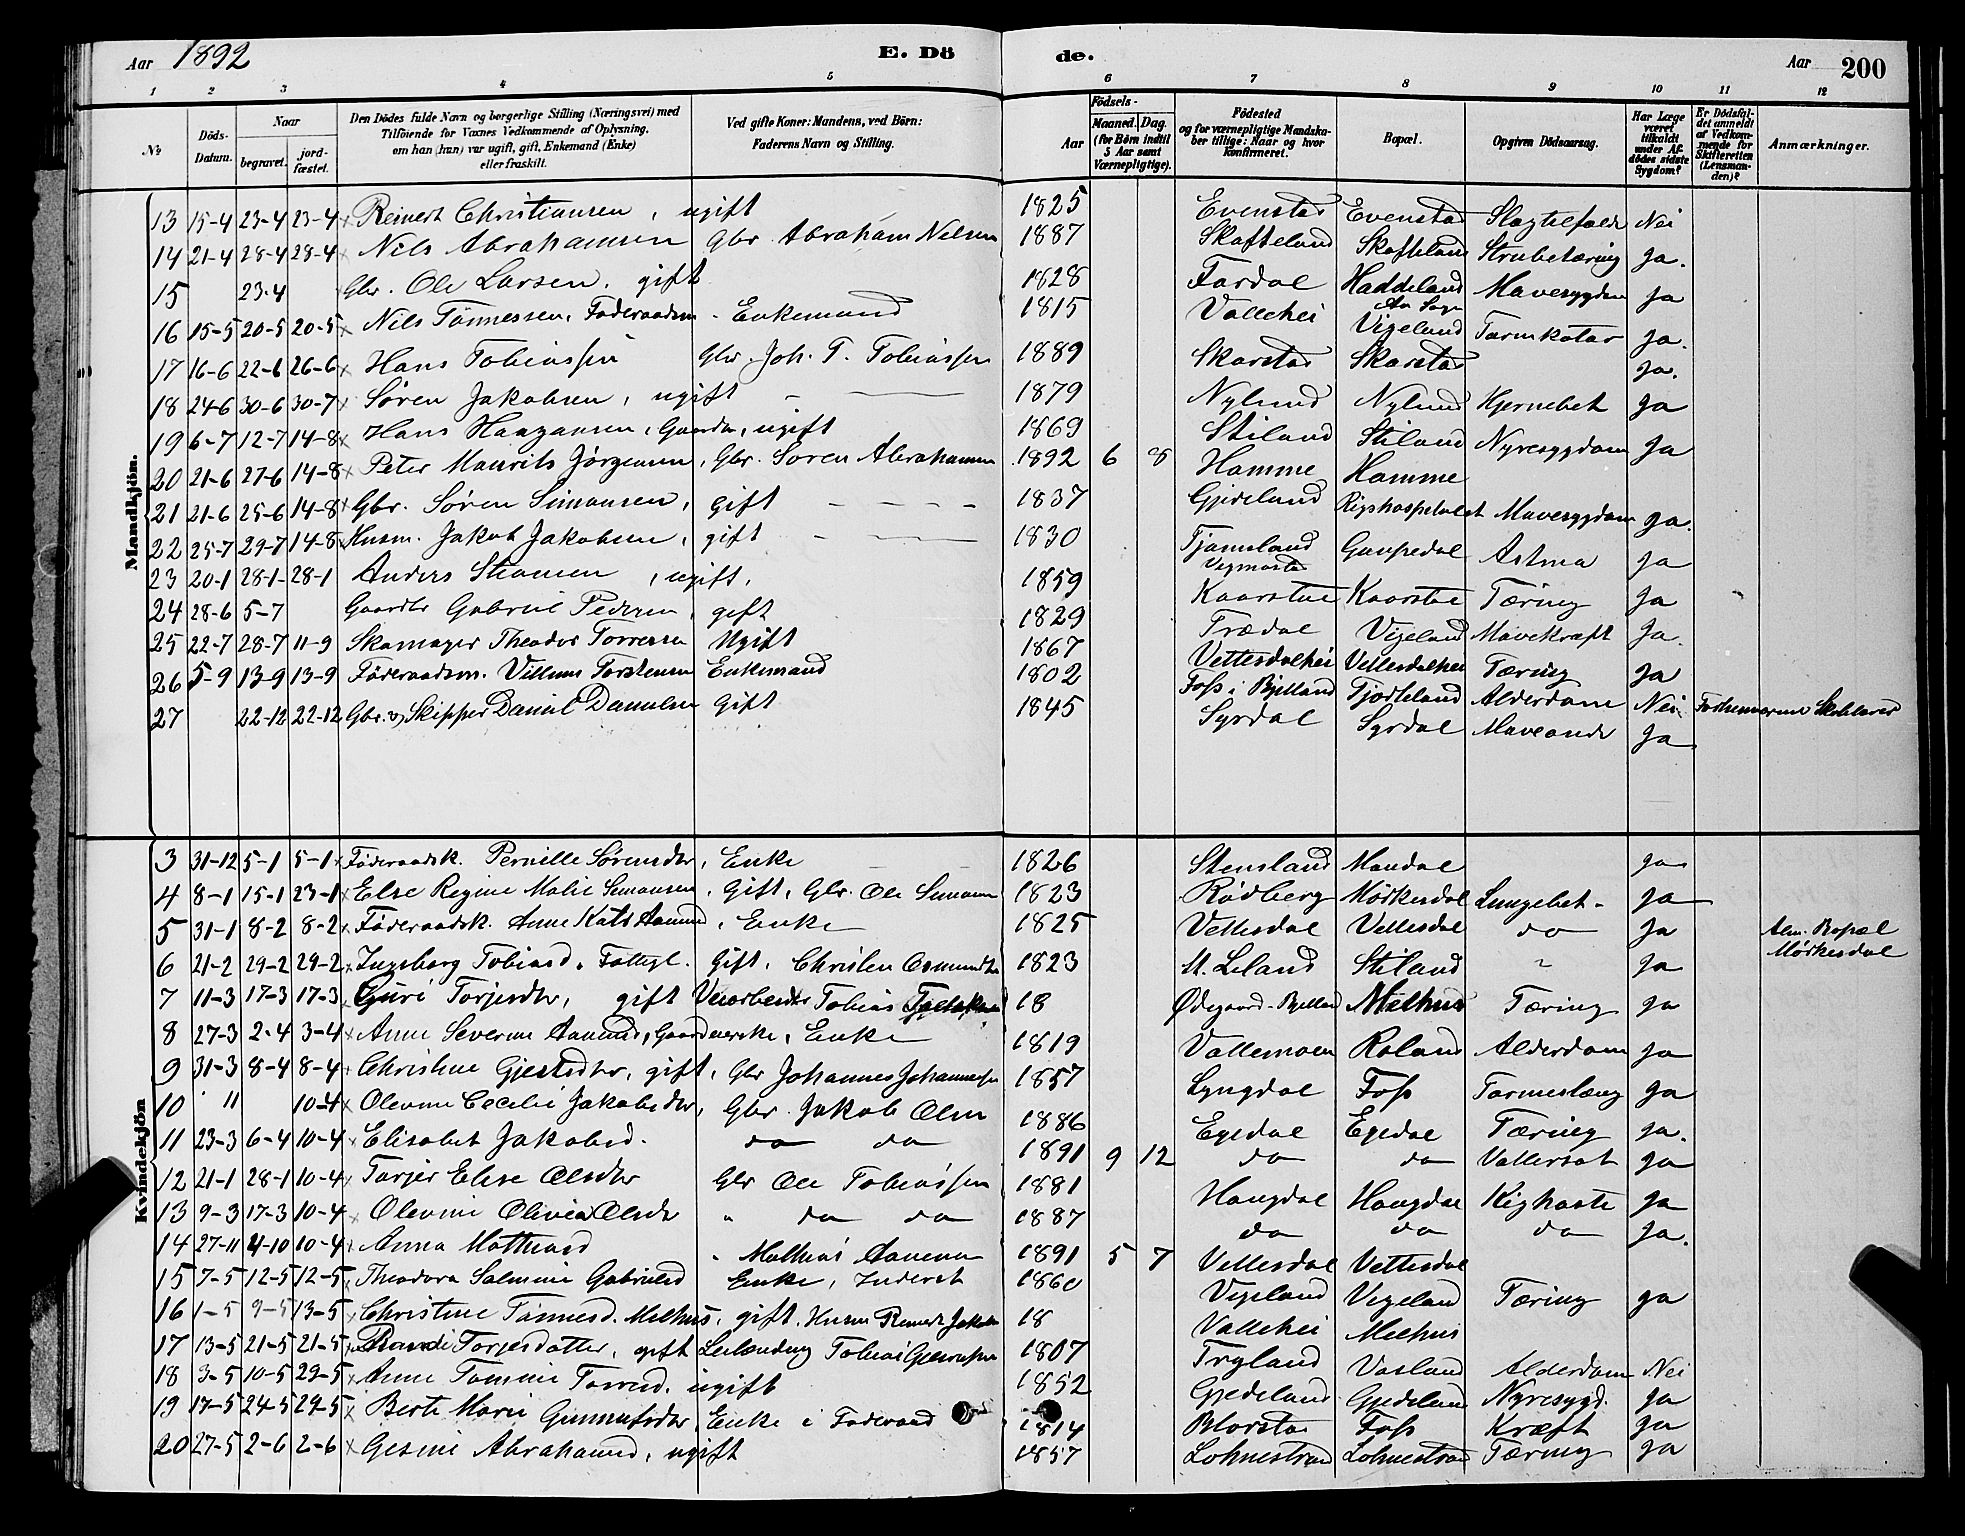 Aar 1892 E. Döde. Aar 200
1 2 3 4 5 6 7 8 9 10 11 12
№ Döds-Datum. Naar begravet. jordfæstet. Den Dödes fulde Navn og borgerlige Stilling (Næringsvei) med Tilföiende for Voxnes Vedkommende af Oplysning, om han (hun) var ugift, gift, Enkemand (Enke) eller fraskilt. Ved gifte Koner: Mandens, ved Börn: Faderens Navn og Stilling. Födsels- Aar Maaned. Dag. (for Börn indtil 5 Aar samt Værnepligtige). Födested og for værnepligtige Mandskaber tillige: Naar og hvor konfirmeret. Bopæl. Opgiven Dödsaarsag. Har Læge været tilkaldt under Afdödes sidste Sygdom? Er Dödsfaldet anmeldt af Vedkommende for Skifteretten (Lensmanden)? Anmærkninger.
Mandkjön.
13 15-4 23-4 23-4 Reinert Christiansen, ugift 1825 Evenstad Evenstad Nei
14 21-4 28-4 28-4 Nils Abrahamsen Gbr. Abraham Nilsen 1887 Skofteland Skofteland Strubetæring Ja.
15 23-4 Gbr. Ole Larsen, gift 1828 Fardal Haddeland Mavesygdom Ja
16 15-5 20-5 20-5 Nils Tönnessen, Föderaadsm. Enkemand 1815 Vallehei Vigeland Tarmkatar Ja.
17 16-6 22-6 26-6 Hans Tobiassen Gbr. Joh. T. Tobiassen 1889 Skarstad Skarstad Ja.
18 24-6 30-6 30-7 Sören Jakobsen, ugift 1879 Nylund Nylund Ja
19 6-7 12-7 14-8 Hans Haagansen, ugift 1869 Stiland Stiland Nyresygdom Ja
20 21-6 27-6 14-8 Peter Maurits Jörgensen, Gbr. Sören Abrahamsen 1892 6 8 Homme Homme
21 21-6 25-6 14-8 Gbr. Sören Simonsen, gift 1837 Gjedeland Rigshospitalet Mavesygdom Ja.
22 25-7 29-7 14-8 Husm. Jakob Jakobsen, gift 1830 Tjomsland Vigmostad Gaupedal Astma Ja
23 20-1 28-1 28-1 Anders , ugift. 1859 Kaarstad Kaarstad Tæring Ja
24 28-6 5-7 Gaardbr Gabriel Pedersen, gift 1829 Trædal Vigeland Mavekræft Ja.
25 22-7 28-7 11-9 Skomager Theodor Torressen Ugift 1867 Vettesdalhei Vettesdalhei Tæring Ja
26 5-9 13-9 13-9 Föderaadsm. Villum Torstensen Enkemand 1802 Foss i Bjelland Fjordeland Alderdom Nei
27 22-12 22-12 Gbr. og Skipper Daniel Danielsen Gift 1845 Syrdal Syrdal Maveonde Ja
Kvindekjön
3 31-12 5-1 5-1 Föderaadsk. Pernille Sörensdtr, Enke 1826 Stensland Mandal Ja
4 8-1 15-1 23-1 Else Regine Malie Simonsen, Gift, Gbr. Ole Simonsen 1823 Rödberg Mörkesdal Lungebet. Ja
5 31-1 8-2 8-2 Föderaadsk. Anne Kats Aamund, Enke 1825 Vettesdal Vettesdal do Ja Alm. Bopæl Mörkesdal
6 21-2 29-2 29-2 Ingeborg Tobiasd. Fattigl. Gift, Christen Osmundsen 1823 Leland Stiland " Ja
7 11-3 17-3 17-3 Guri Torjesdtr, gift Tobias 18 Ødegaard - Bjelland Melhus Tæring Ja
8 27-3 2-4 3-4 Anne Severine Aamund, Enke 1819 Vallemoen Roland Alderdom Ja
9 31-3 8-4 8-4 Christine Gjertsdtr, gift, Gbr Johannes Johannessen 1857 Lyngdal Foss Ja
10 " 10-4 Olevine Cecilie Jakobsdtr, Gbr. Jakob Olsen 1886 Egedal Egedal Tæring Ja.
11 23-3 6-4 10-4 Elisabet Jakobsd. do do 1891 9 12 do do Vattersot Ja
12 21-1 28-1 10-4 Torjer Elise Olsdtr Gbr Ole Tobiassen 1881 Hougdal Hougdal Kighoste Ja
13 9-3 17-3 10-4 Olevine Olivia Olsdtr " do do 1887 do do do Ja.
14 27-11 4-10 10-4 Anna Mathiasd " Mathias Aanensen 1891 5 7 Vettesdal Vettesdal
15 7-5 12-5 12-5 Theodora Salmine Gabrielsd Enke, Inderst 1860 Vigeland Vigeland Tæring Ja
16 1-5 9-5 13-5 Christine Tönnesd. Melhus, gift, Husm Jakobsen 18 Vallehei Melhus
17 13-5 21-5 21-5 Torjesdatter, gift Leilænding Tobias 1807 Trygland Vasland Alderdom Nei
18 3-5 10-5 29-5 Anne Tomine Torresd. ugift 1852 Gjedeland Gjedeland Nyresygd. Ja
19 17-5 24-5 29-5 Berte Marie Gunnufsdtr, Enke i Föderaad 1814 Blorstad Foss Kræft Ja
20 27-5 2-6 2-6 Gesine Abrahamsd, ugift 1857 Lohnestrand Lohnestrand Tæring Ja